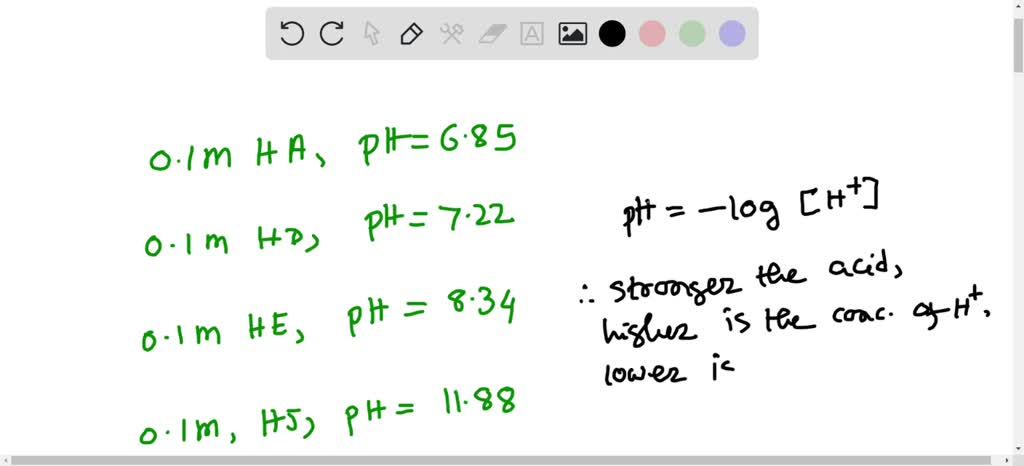 0.1m HA, pH = 6.85
0.1m HD, pH = 7.22
0.1m HE, pH = 8.34
0.1m, HJ, pH = 11.88
pH = -log [H+]
∴ stronger the acid,
higher is the conc. of H+,
lower is